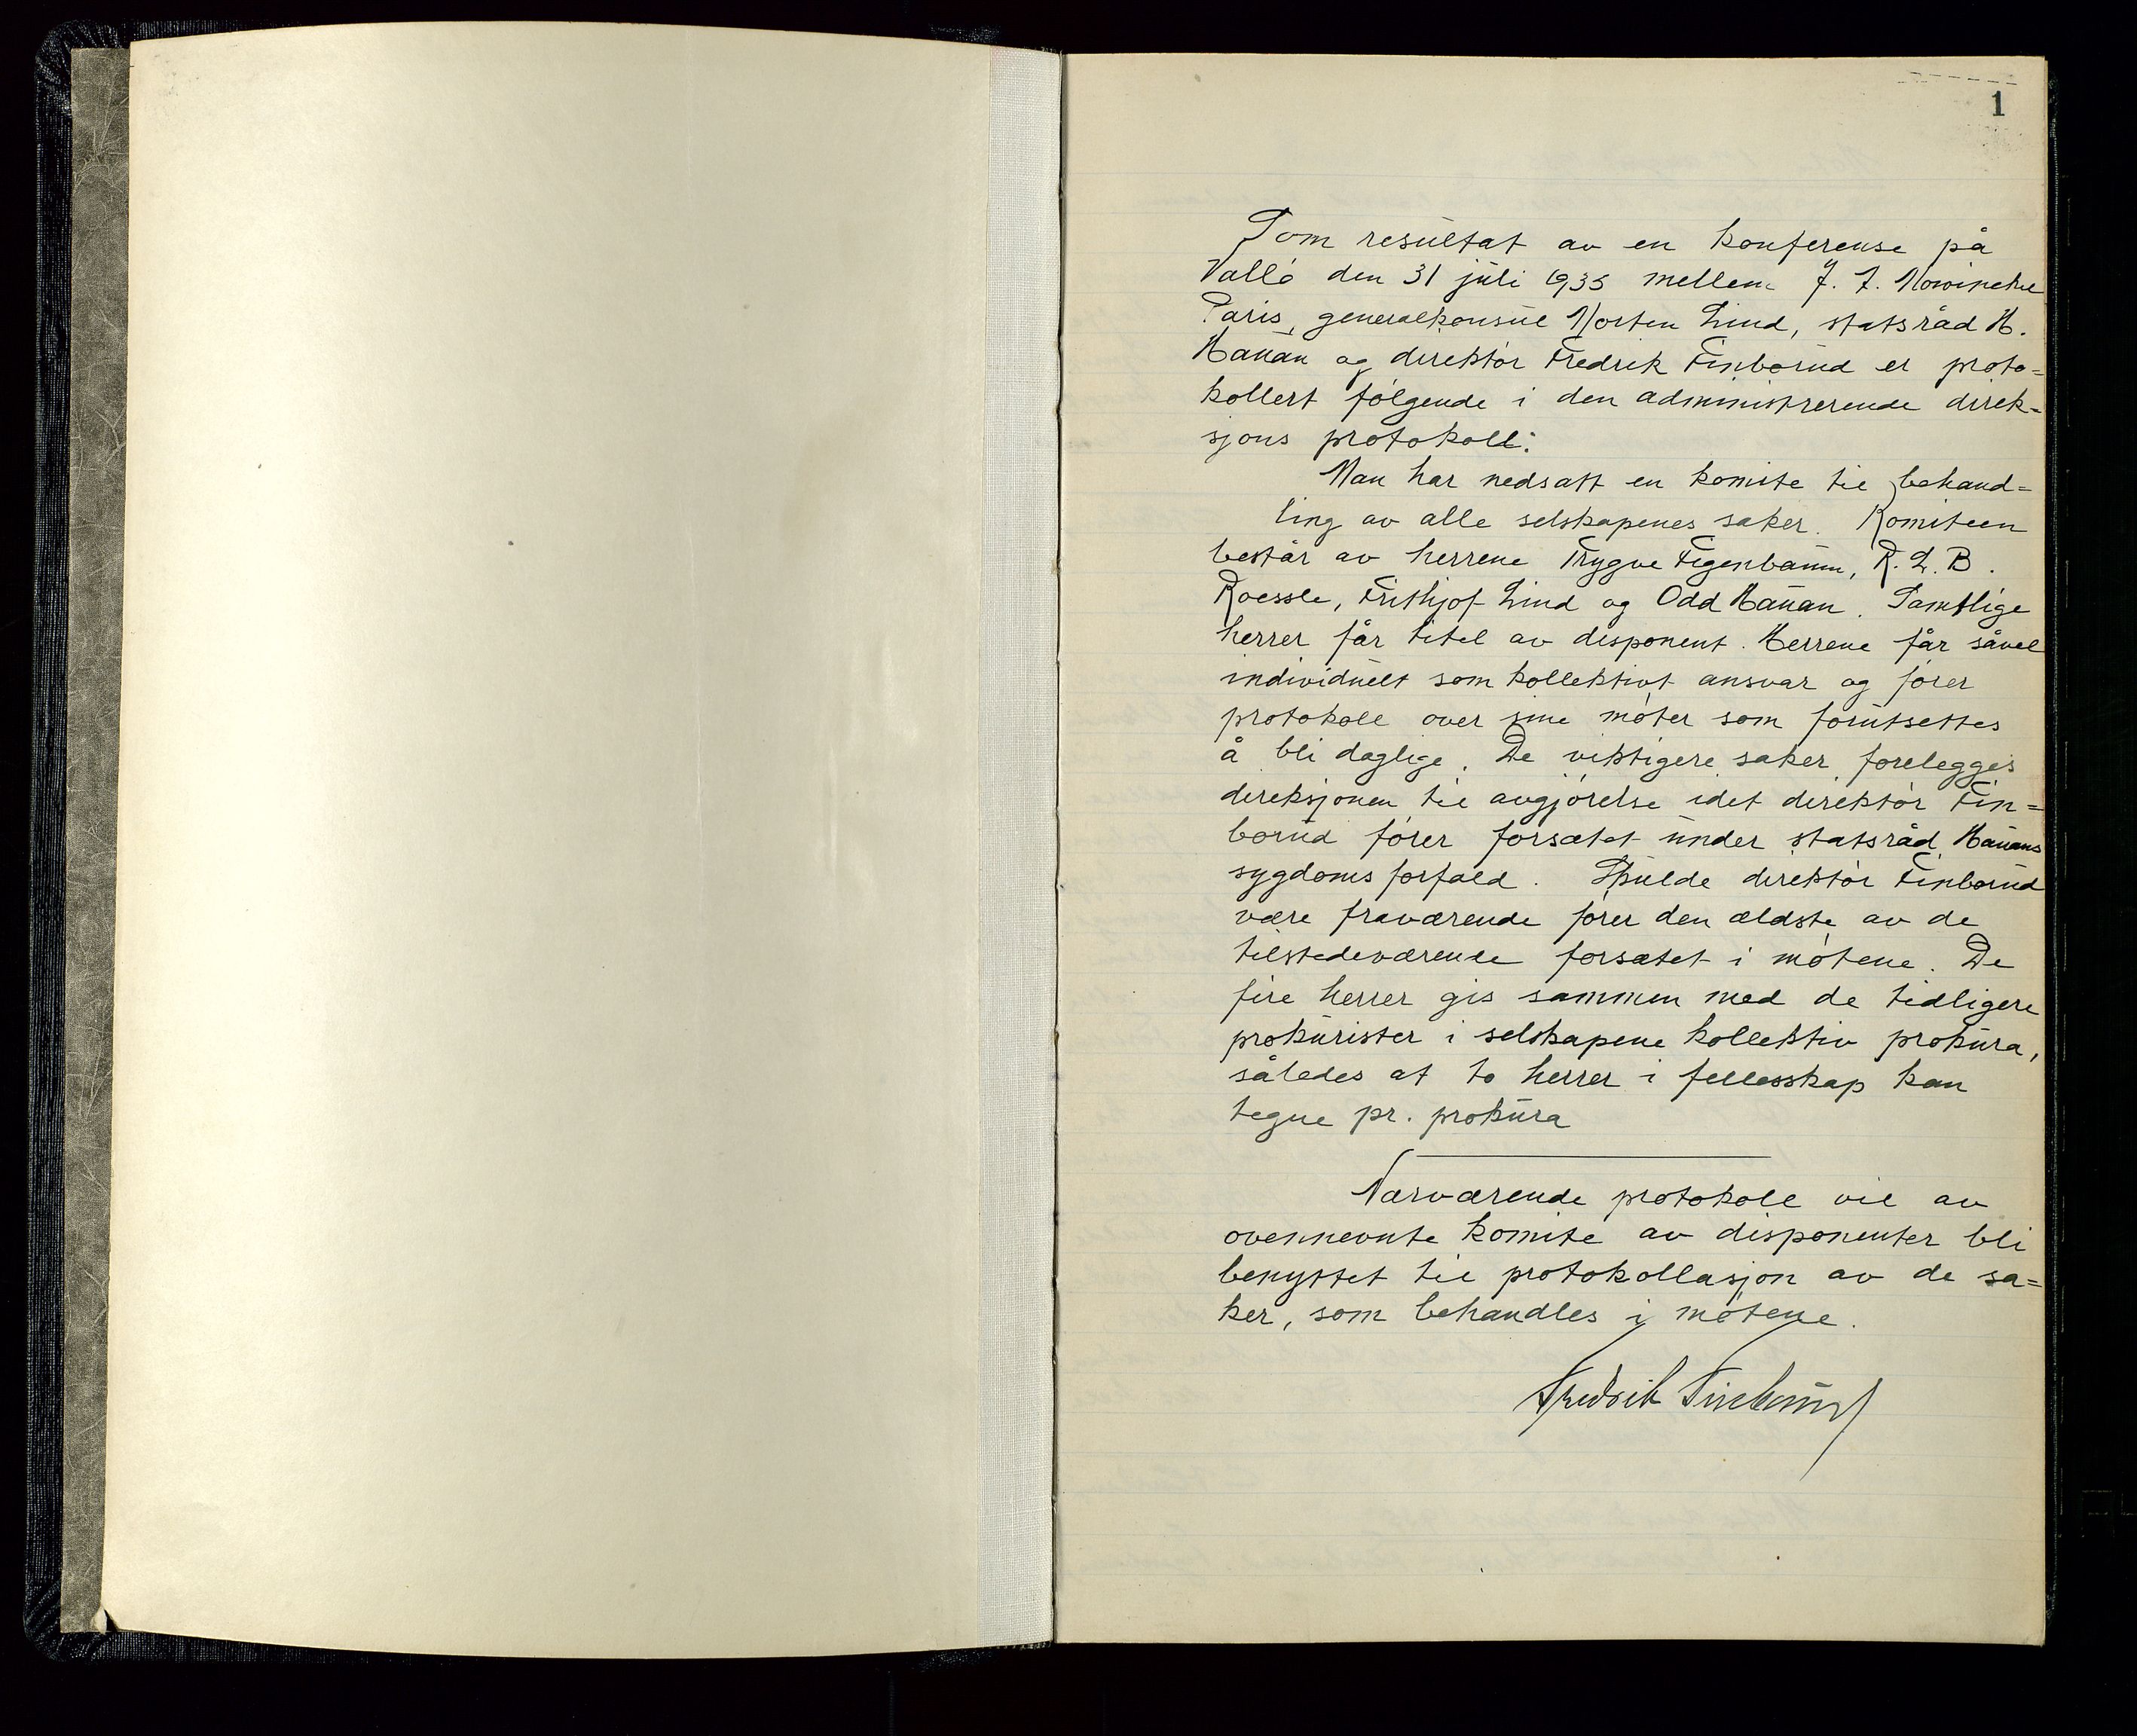 1
Som resultat av en konferense på
Vallö den 31 juli 1935 mellem J. J.
Paris, generalkonsul Morten Lind, statsråd H.
Hauan og direktör Fredrik Finborud er proto=
kollert fölgende i den administrerende direk=
sjons protokoll:
Man har nedsatt en komite til behand=
ling av alle selskapenes saker. Komiteen
består av herrene Trygve Figenbaum, R. L. B.
Roessle, Frithjof Lind og Odd Hauan. Samtlige
herrer får titel av disponent. Herrene får såvel
individuelt som kollektivt ansvar og förer
protokoll over sine möter som forutsettes
å bli daglige. De viktigere saker forelegges
direksjonen til avgjörelse idet direktör Fin=
borud förer forsætet under statsråd Hauans
sygdoms forfald. Skulde direktör Finborud
være fraværende förer den ældste av de
tilstedeværende forsætet i mötene. De
fire herrer gis sammen med de tidligere
prokurister i selskapene kollektiv prokura,
således at to herrer i fellesskap kan
tegne pr. prokura
Nærværende protokoll vil av
ovennevnte komite av disponenter bli
benyttet til protokollasjon av de sa=
ker, som behandles i mötene.
Fredrik Finborud